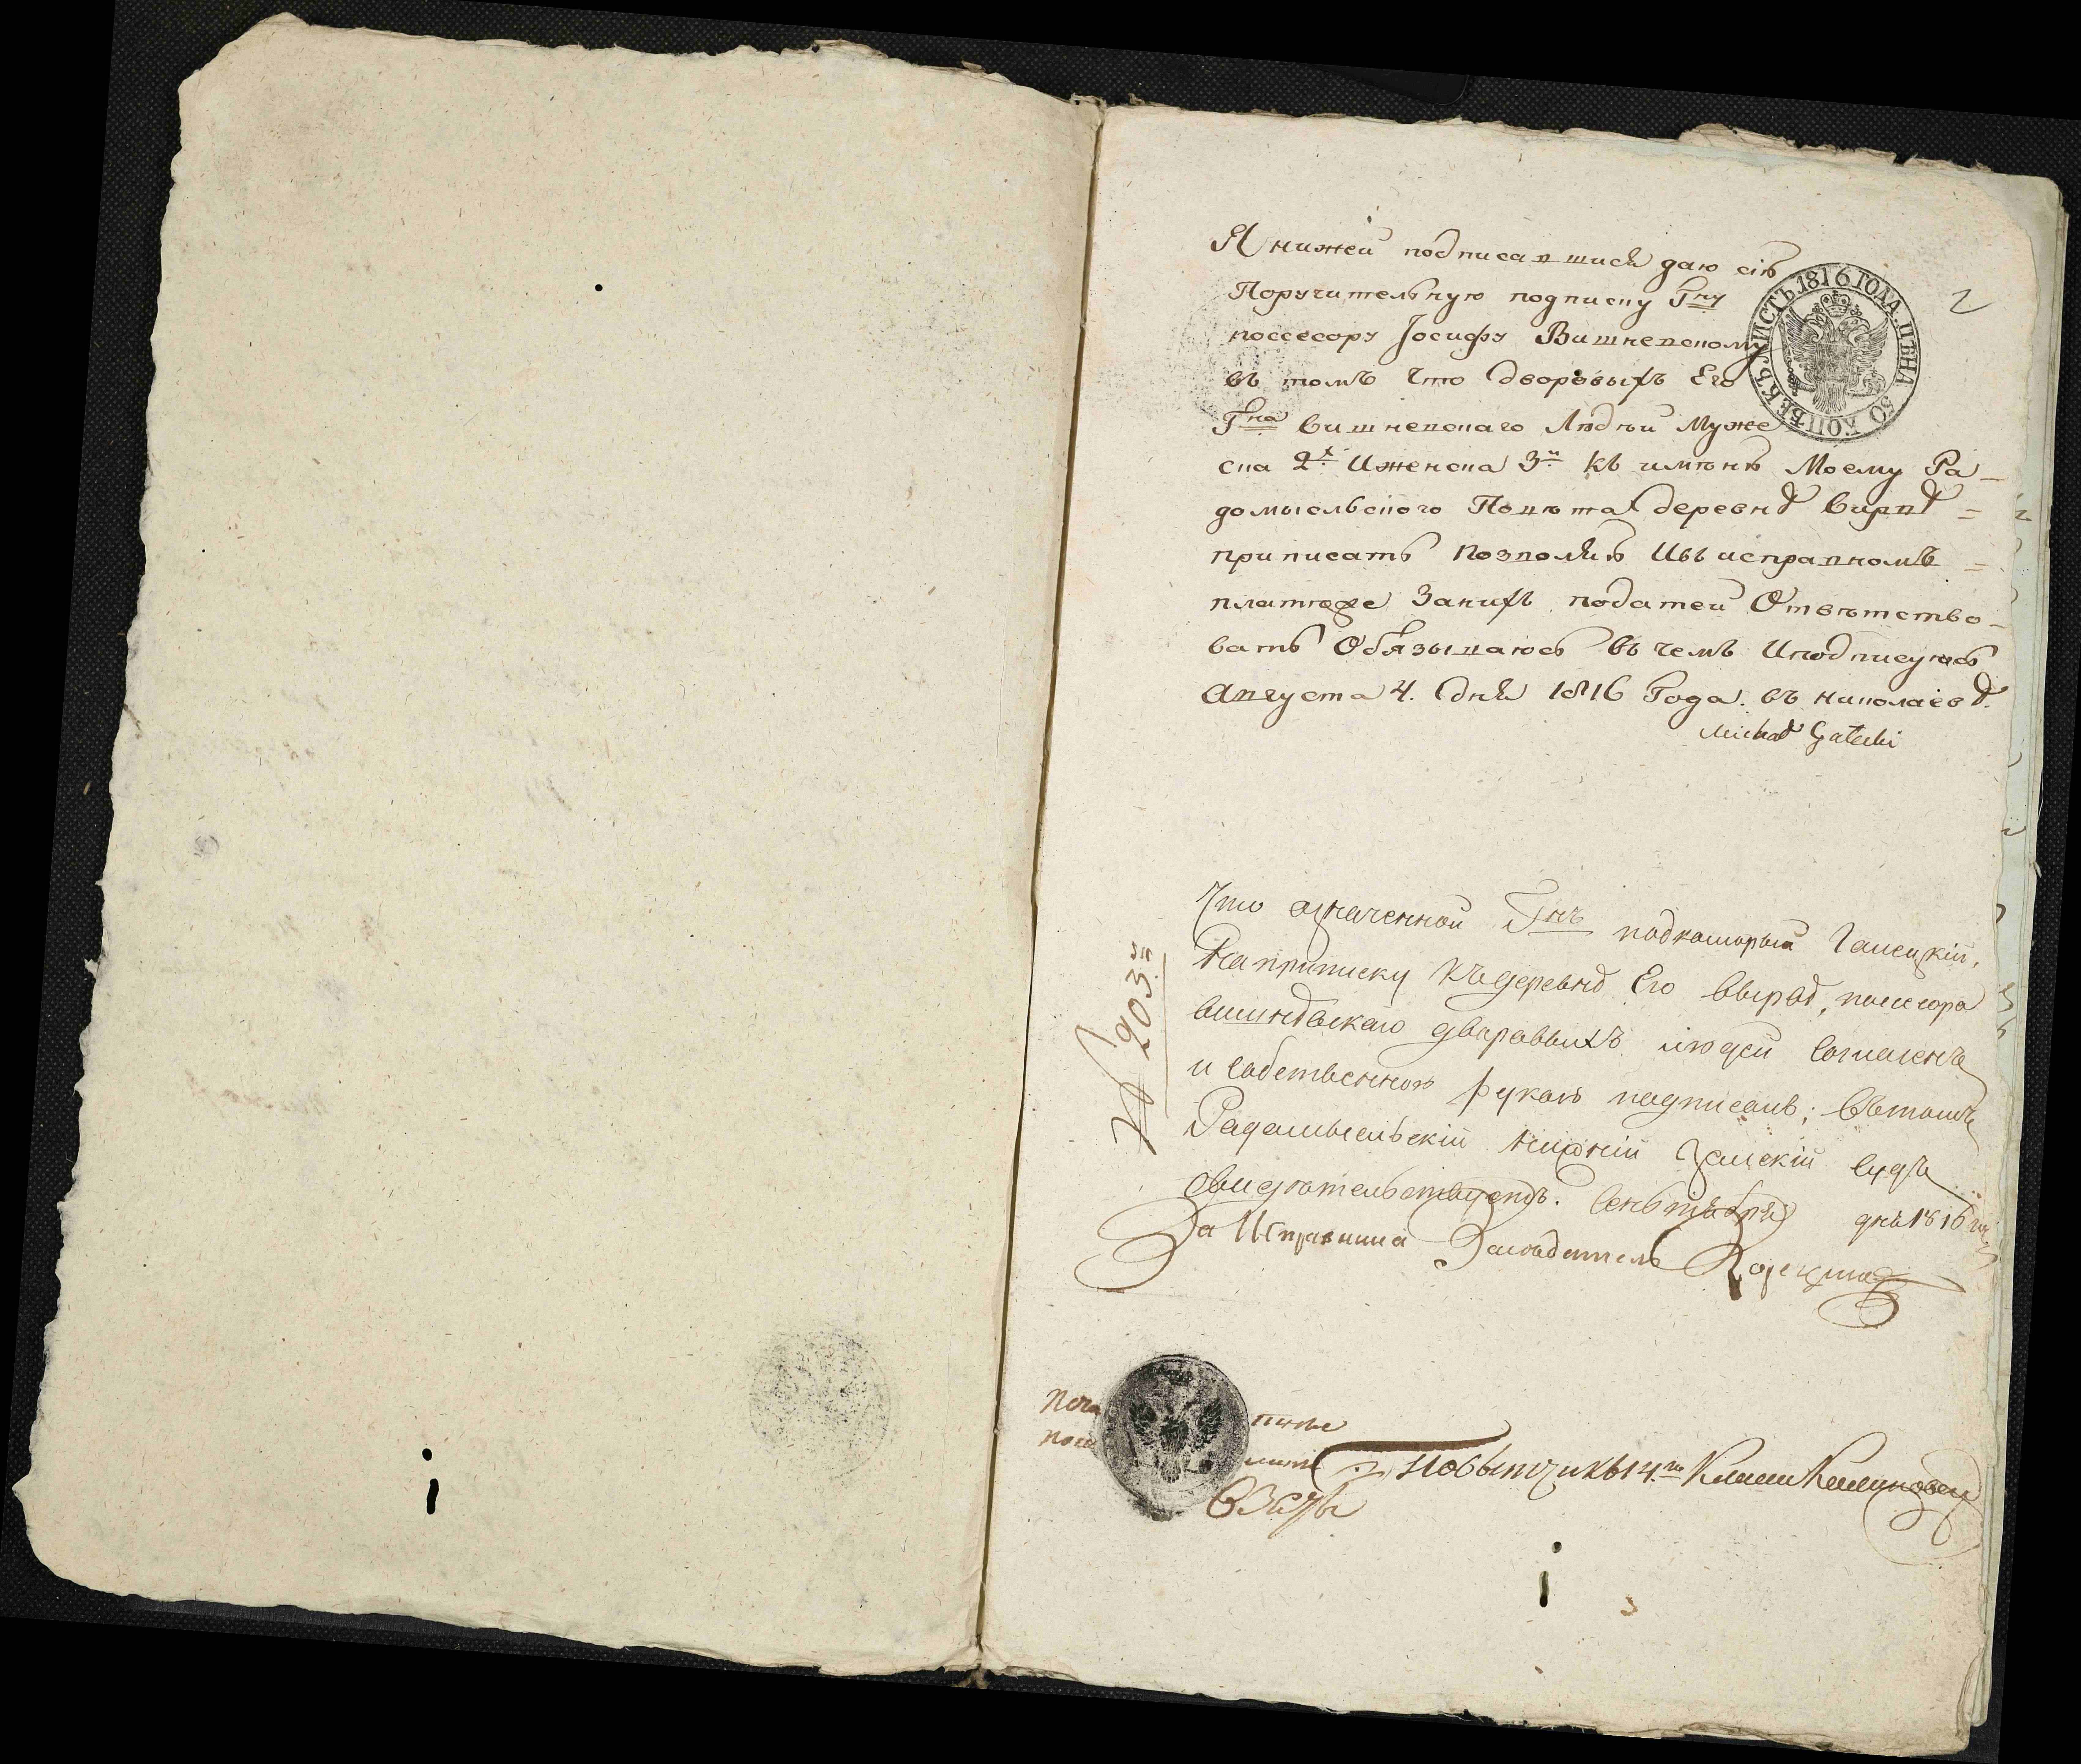 Я нижеи подписавшися даю сію
Поручительную подписку Гну
поссесору Іосифу Вишневскому
въ томъ что дворовыхъ Его
Гна вишневскаго Людѣи Муже
ска 2х Иженска 3и къ имѣнію Моему Ра-
домысльского Повѣта деревнѣ вырвѣ =
приписать Позволяю Ивъ исправномъ =
платеже Занихъ податеи Отвѣтство-
вать Обязываюсь въ чемъ Иподписуюсь
Августа 4. дня 1816 Года. въ николаевѣ.
Michał Gałecki
ЛИСТЪ 1816 ГОДА. ЦѢНА 50 КОПѢЕКЪ
2
Что означенной Гнъ подкоморый Галецкій,
Наприписку Къдеревнѣ Его вырвѣ, посесора
вишневскаго дворовыхъ людей согласенъ
и собственною рукою подписалъ; Вътомъ
Радомысльскій нижній Земскій судъ
свидѣтельствуетъ. Сентября дня 1816 го
За Исправника Засѣдатель
№ 2903.й
Печа тные
пош лины
взяты